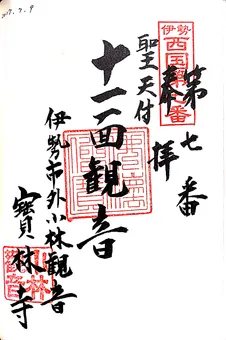 2017.7.9
伊勢
西国第七番
第七番
奉拝
聖天付
十一面観音
伊勢市外小林観音
寳林寺